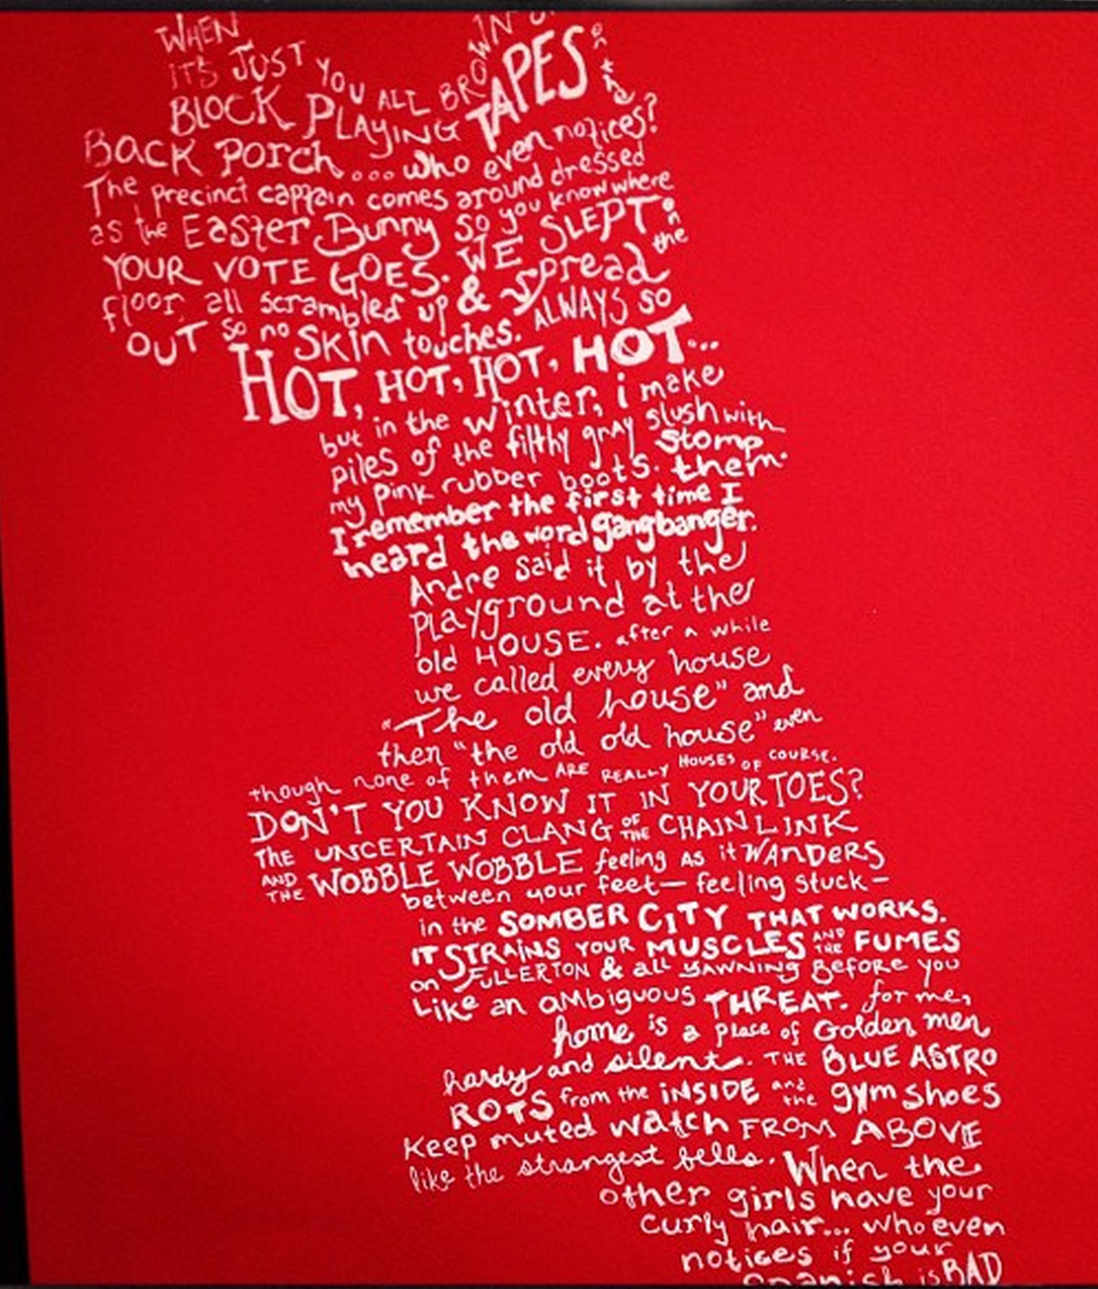 WHEN
IT'S JUST YOU ALL BROWN
BLOCK PLAYING TAPES on the
BACK PORCH... who even notices?
The Precinct captain comes around dressed
as the Easter Bunny so you know where
YOUR VOTE GOES. WE SLEPT on the
floor, all scrambled up & spread
OUT so no SKin touches. ALWAYS so
HOT, HOT, HOT, HOT...
but in the winter, i make
piles of the filthy gray slush with
my pink rubber boots. stomp them.
I remember the first time I
heard the word gangbanger.
Andre said it by the
Playground at the
old HOUSE. after a while
we called every house
"The old house" and
then "the old old house" even
though none of them ARE REALLY HOUSES OF COURSE.
DON'T YOU KNOW IT IN YOUR TOES?
THE UNCERTAIN CLANG OF THE CHAIN LINK
AND THE WOBBLE WOBBLE feeling AS it WANDERS
between your feet— feeling stuck—
in the SOMBER CITY THAT WORKS.
IT STRAINS YOUR MUSCLES AND THE FUMES
on FULLERTON & all YAWNING Before you
Like an ambiguous THREAT. for me,
home is a place of Golden men
hardy and silent. THE BLUE ASTRO
ROTS from the iNSIDE and the gym shoes
Keep muted watch FROM ABOVE
like the strangest bells. When the
other girls have your
curly hair... who even
notices if your
Spanish is BAD